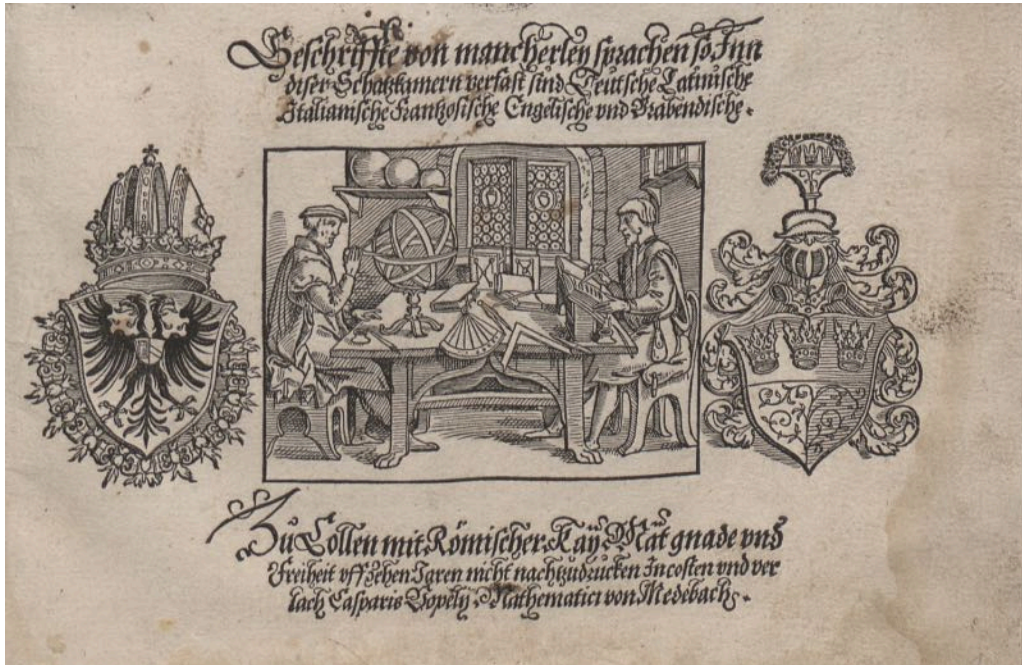 Geschriffte von mancherley sprachen so Inn
diser Schatzkamern verfast sind Deutsche Latinische
Italianische Frantzosische Engelische vnd Brabendische.
Zu Cöllen mit Römischer Kay. Mat gnade vnd
Freiheit vff zehen Jaren nicht nachzudrucken In costen vnd ver
lach Casparis Vopely, Mathematici von Medebach.